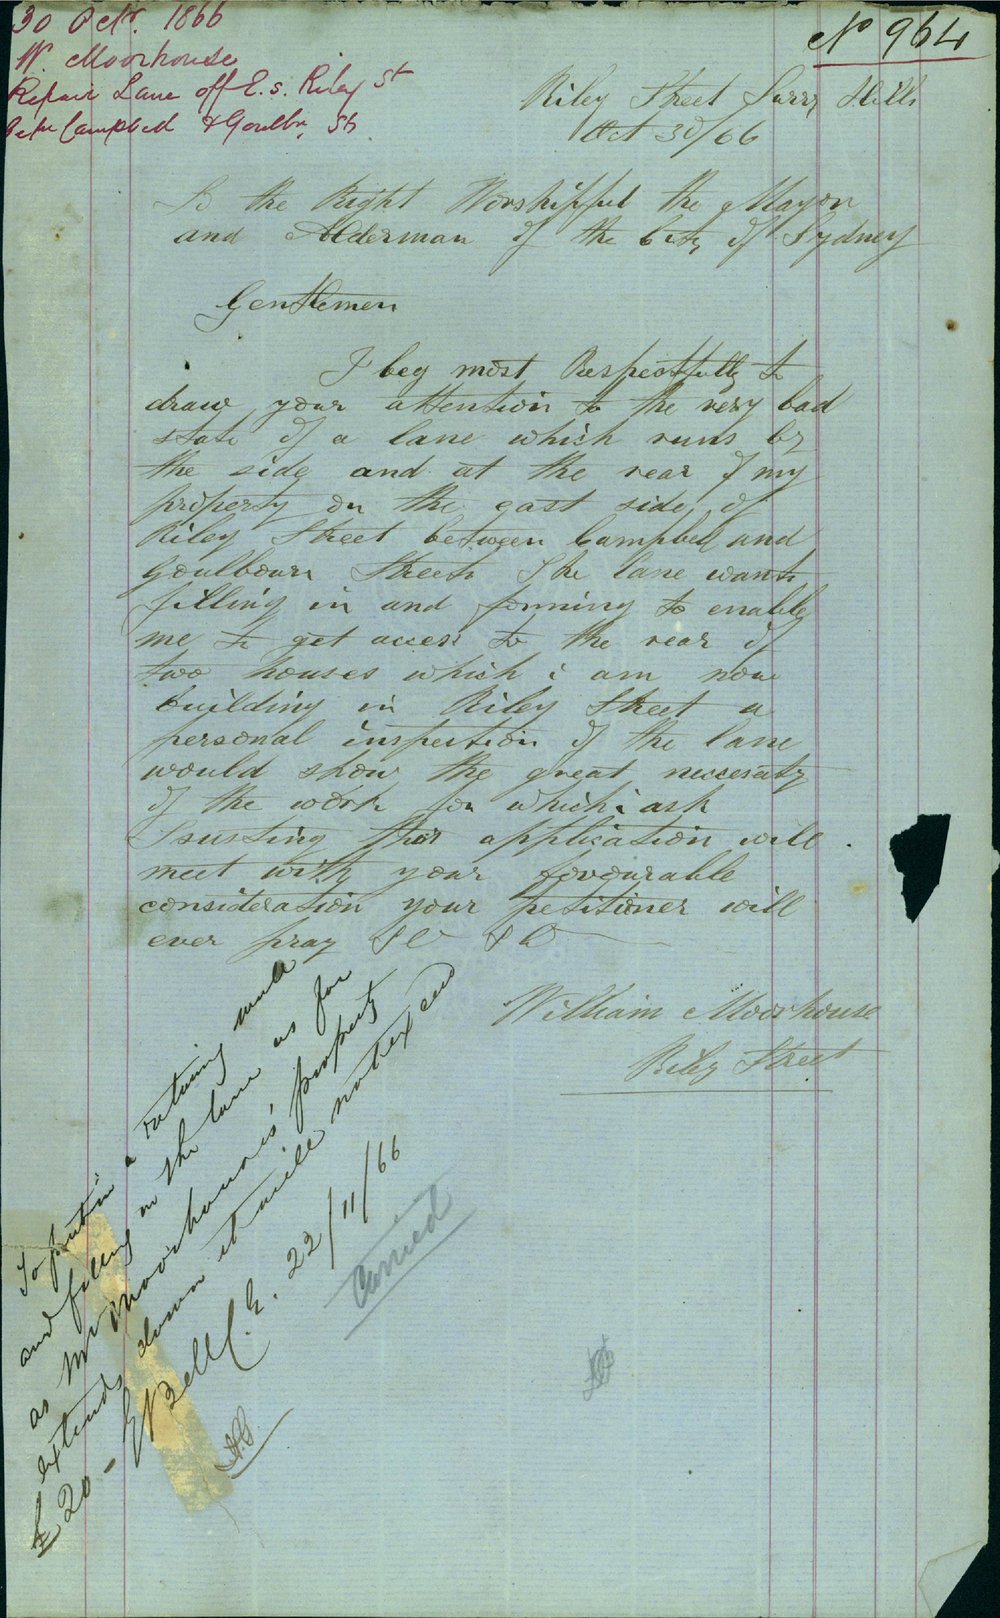 30 Octr. 1866
W. Moorhouse
Repair Lane off E.s. Riley St
betw Campbell & Goulbn. Sts
No 964
Riley Street Surry Hills
Oct 30/66
To the Right Worshipful the Mayor
and Alderman of the City of Sydney
Gentlemen
I beg most Respectfully to
draw your attention to the very bad
state of a lane which runs by
the side and at the rear of my
property on the east side of
Riley Street between Campbel and
Goulbourn Streets The lane wants
filling in and forming to enable
me to get access to the rear of
two houses which i am now
building in Riley Street a
personal inspection of the lane
would show the great neccesity
of the work for which i ask
Trusting this application will
meet with your favourable
consideration your petitioner will
ever pray &c &c
William Moorhouse
Riley Street
To put in a retaining wall
and filling in the lane as far
as Mr Moorhouse's property
extends down it will not exceed
£20 - E Bell C.E. 22/11/66
Carried